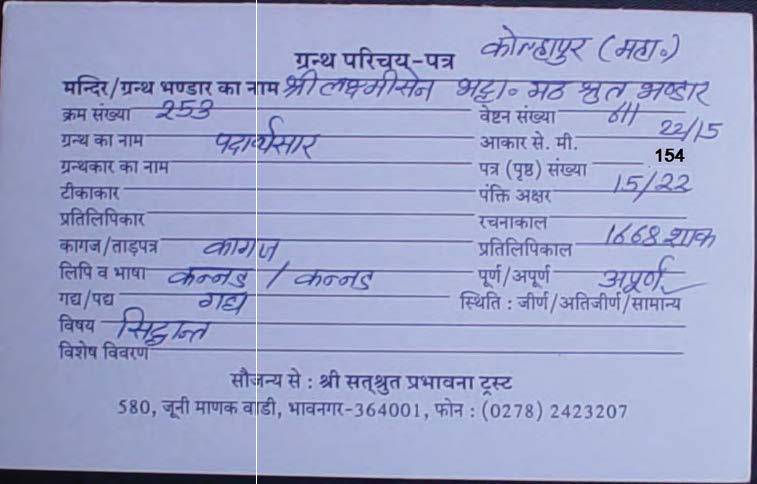 ग्रन्थ परिचय-पत्र कोल्हापुर (महा.)
मन्दिर/ग्रन्थ भण्डार का नाम श्री लक्ष्मीसेन भट्टा. मठ श्रुत भण्डार
क्रम संख्या 253 वेष्टन संख्या
ग्रन्थ का नाम पदार्थसार आकार से. मी. 22/15
ग्रन्थकार का नाम पत्र (पृष्ठ) संख्या 154
टीकाकार पंक्ति अक्षर 15/22
प्रतिलिपिकार रचनाकाल
कागज/ताड़पत्र कागज प्रतिलिपिकाल 1668 शाक
लिपि व भाषा कन्नड / कन्नड पूर्ण/अपूर्ण अपूर्ण
गद्य/पद्य गद्य स्थिति : जीर्ण/अतिजीर्ण/सामान्य
विषय सिद्धान्त
विशेष विवरण
सौजन्य से : श्री सत्श्रुत प्रभावना ट्रस्ट
580, जूनी माणक वाडी, भावनगर-364001, फोन : (0278) 2423207